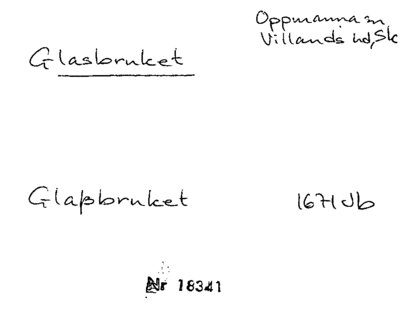 Oppmanna sn
Villands hd, Sk
Glasbruket
Glaßbruket 1671 Jb
Nr 18341